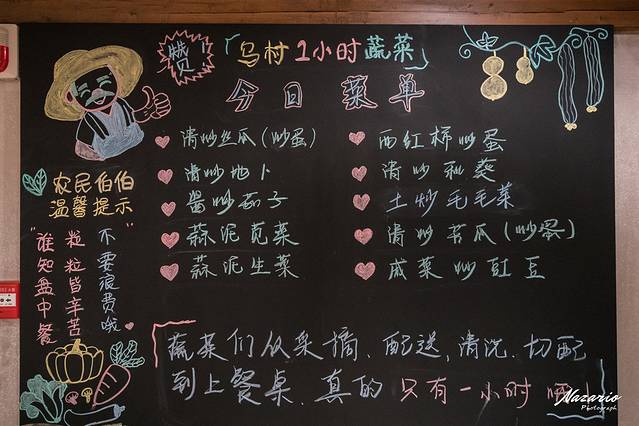 赞!
「乌村1小时蔬菜」
今日菜单
清炒丝瓜(炒蛋)
清炒地卜
酱炒茄子
蒜泥苋菜
蒜泥生菜
西红柿炒蛋
清炒秋葵
土炒毛毛菜
清炒苦瓜(炒蛋)
咸菜炒豇豆
农民伯伯
温馨提示
不要浪费哦
"粒粒皆辛苦
谁知盘中餐"
蔬菜们从采摘、配送、清洗、切配
到上餐桌、真的只有一小时
Nazario
Photograph